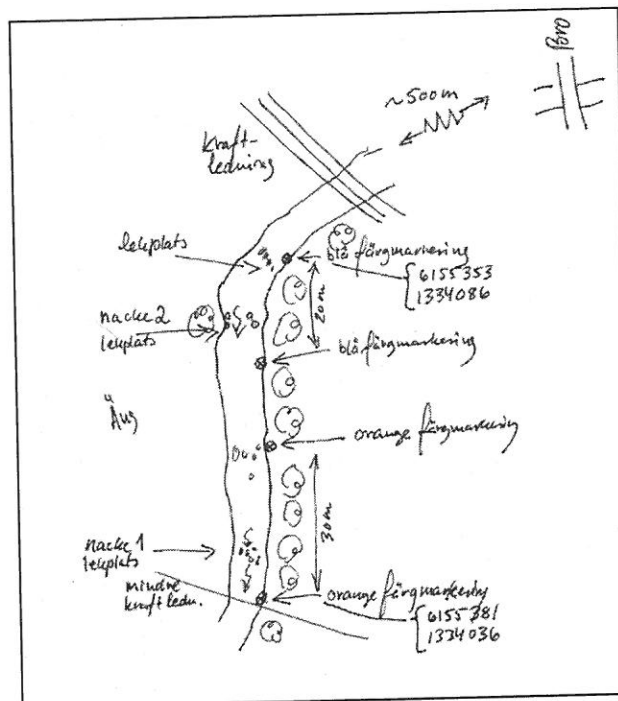 Bro
~500m
Kraft-
ledning
lekplats
blå färgmarkering
6155353
1334086
20m
nacke 2
lekplats
blå färgmarkering
Äng
orange färgmarkering
30m
nacke 1
lekplats
mindre
kraftledn.
orange färgmarkering
6155381
1334036